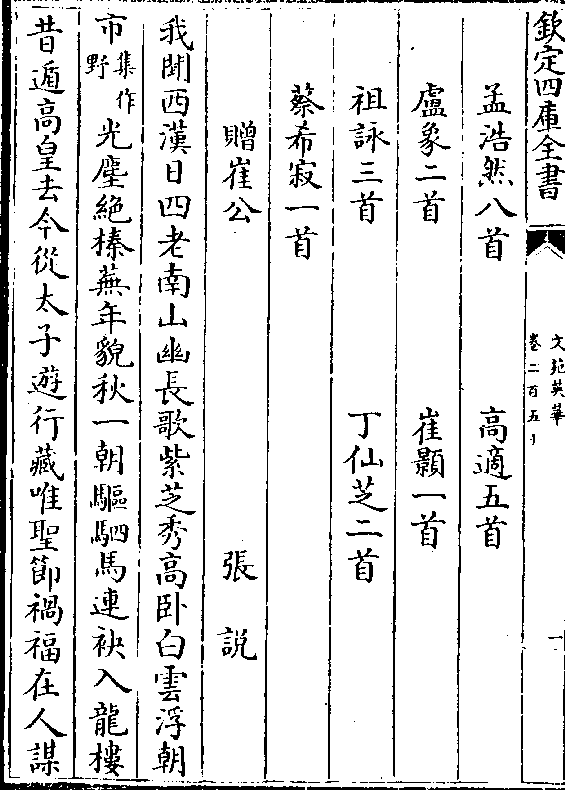 欽定四庫全書
文苑英華
卷二百五
一
孟浩然八首 高適五首
盧象二首 崔顥一首
祖詠三首 丁仙芝二首
蔡希寂一首
贈崔公 張說
我聞西漢日四老南山幽長歌紫芝秀高卧白雲浮朝
市集作野光塵絶榛蕪年貌秋一朝驅駟馬連袂入龍樓
昔遁高皇去今從太子遊行藏唯聖節禍福在人謀